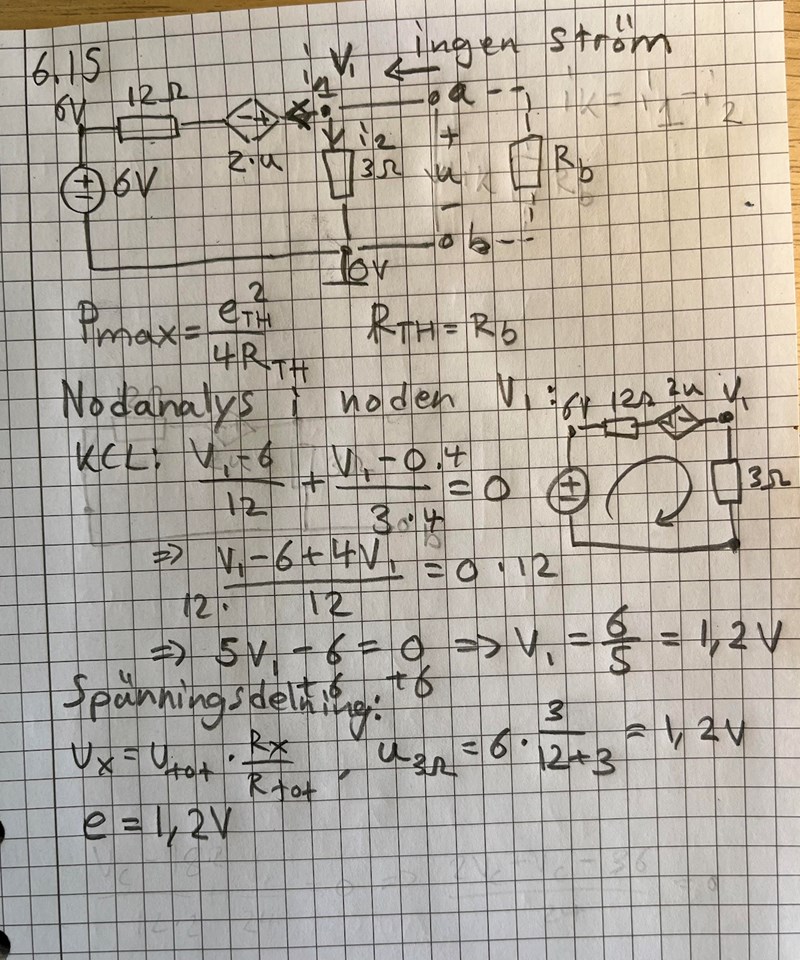 6.15
i₁ V₁ ← ingen ström
6V 12Ω - + a
2·u i₂ 3Ω + u - R_b
iₖ = i₁ - i₂
+ - 6V
0V b
Pmax = e_TH² / 4R_TH R_TH = R_b
Nodanalys i noden V₁: 6V 12Ω 2u V₁
KCL: (V₁-6)/12 + (V₁-0·4)/(3·4) = 0 + - 3Ω
=> 12· (V₁-6+4V₁)/12 = 0·12
=> 5V₁ - 6 = 0 => V₁ = 6/5 = 1,2V
+6 +6
Spänningsdelning:
U_x = U_tot · R_x/R_tot , u_3Ω = 6 · 3/(12+3) = 1,2V
e = 1,2V